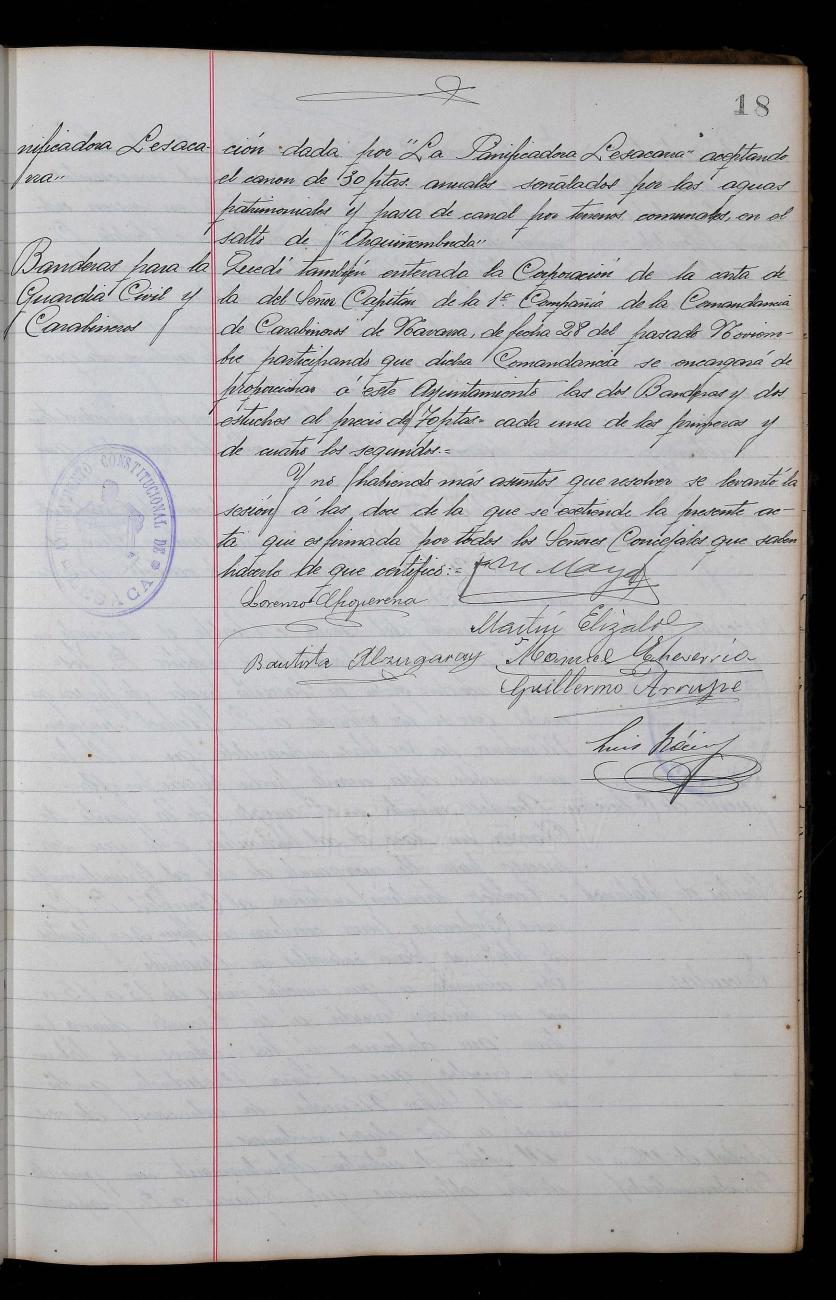 18
nificadora Lesaca-
rra"
ción dada por "La Panificadora Lesacarra" aceptando
el canon de 30 ptas. anuales señalados por las aguas
patrimoniales y pasa de canal por terrenos comunales, en el
salto de "Arquiñemburda"
Banderas para la
Guardia Civil y
Carabineros
Quedó también enterada la Corporación de la carta de
la del Señor Capitán de la 1ª Compañía de la Comandancia
de Carabineros de Navarra, de fecha 28 del pasado Noviem-
bre participando que dicha Comandancia se encargará de
proporcionar á este Ayuntamiento las dos Banderas y dos
estuches al precio de 70 ptas= cada una de las primeras y
de cuatro los segundos.=
Y no habiendo más asuntos que resolver se levantó la
sesión á las doce de la que se extiende la presente ac-
ta que es firmada por todos los Señores Concejales que saben
hacerlo de que certifico:=
AYUNTAMIENTO CONSTITUCIONAL DE LESACA
Lorenzo
Martin Elizalde
Bautista Alzugaray Manuel Echeverria
Guillermo Arrupe
Luis